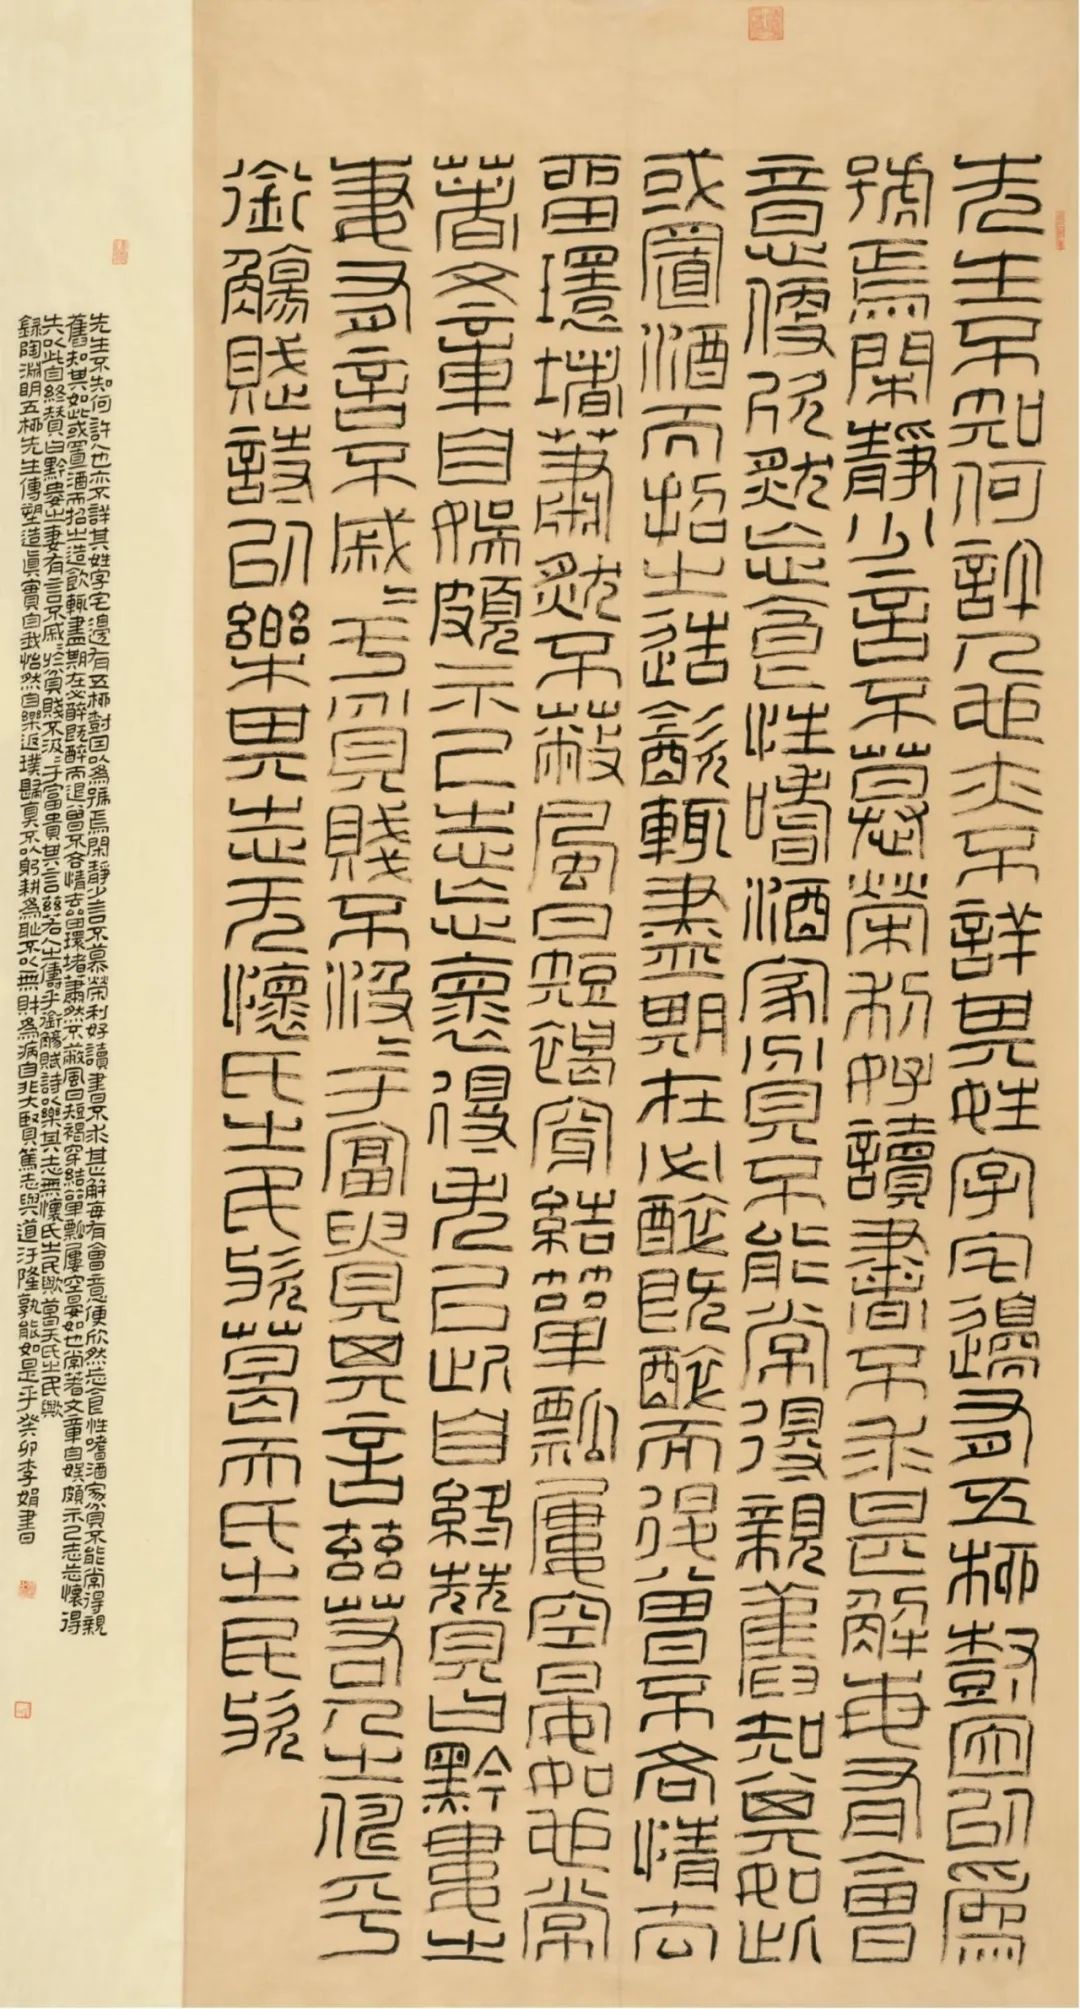 先生不知何許人也亦不詳其姓字宅邊有五柳樹因以為
號焉閑靜少言不慕榮利好讀書不求甚解每有會
意便欣然忘食性嗜酒家貧不能常得親舊知其如此
或置酒而招之造飲輒盡期在必醉既醉而退曾不吝情去
留環堵蕭然不蔽風日短褐穿結簞瓢屢空晏如也常
著文章自娛頗示己志忘懷得失以此自終贊曰黔婁之
妻有言不戚〻于貧賤不汲〻于富與貴其言茲若人之儔乎
銜觴賦詩以樂其志无懷氏之民歟葛天氏之民歟
先生不知何許人也亦不詳其姓字宅邊有五柳樹因以為號焉閑靜少言不慕榮利好讀書不求甚解每有會意便欣然忘食性嗜酒家貧不能常得親
舊知其如此或置酒而招之造飲輒盡期在必醉既醉而退曾不吝情去留環堵蕭然不蔽風日短褐穿結簞瓢屢空晏如也常著文章自娛頗示己志忘懷得
失以此自終贊曰黔婁之妻有言不戚〻於貧賤不汲〻于富貴其言茲若人之儔乎銜觴賦詩以樂其志無懷氏之民歟葛天氏之民歟
錄陶淵明五柳先生傳塑造真實自我怡然自樂返璞歸真不以躬耕為恥不以無財為病自非大賢篤志與道汙隆孰能如是乎癸卯李娟書